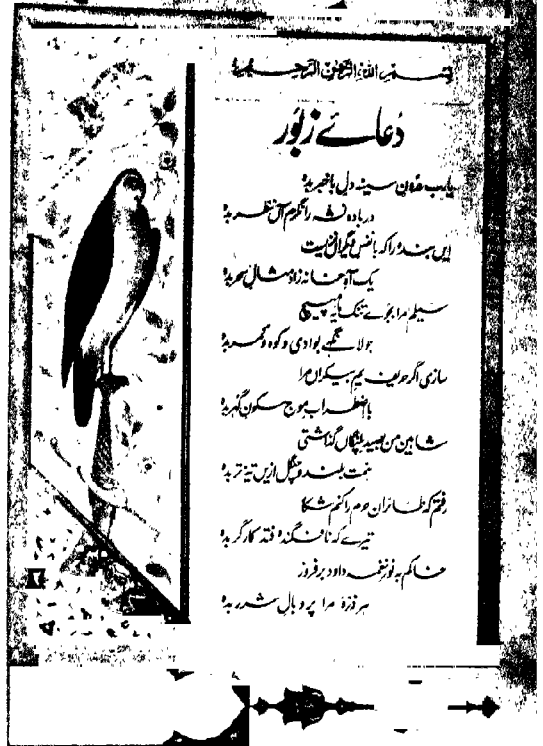 بسم اللہ الرحمٰن الرحیم
دُعائے زبُور
یارب درون سینہ دل باخبر بدہ
در بادہ نشہ را نگرم آں نظر بدہ
ایں بندہ را کہ با نفس دیگراں نزیست
یک آہ خانہ زاد مثال سحر بدہ
سیلم مرا بجوے تنک مایہ مپیچ
جولانگہے بوادی و کوہ و کمر بدہ
سازی اگر حریف یم بیکراں مرا
با اضطراب موج سکون گہر بدہ
شاہین من بصید پلنگاں گذاشتی
ہمت بلند و چنگل ازیں تیز تر بدہ
رفتم کہ طائران حرم را کنم شکار
تیرے کہ نافگندہ فتد کارگر بدہ
خاکم بہ نور نغمہ داود بر فروز
ہر ذرّہ مرا پر و بال شرر بدہ